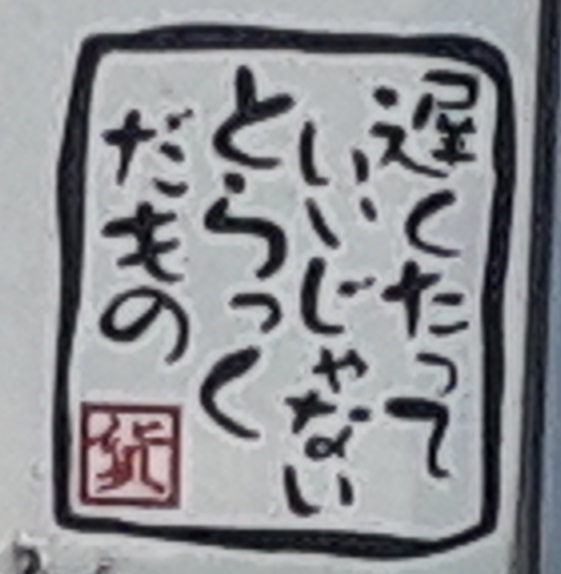 遅くたって
いいじゃない
とらっく
だもの